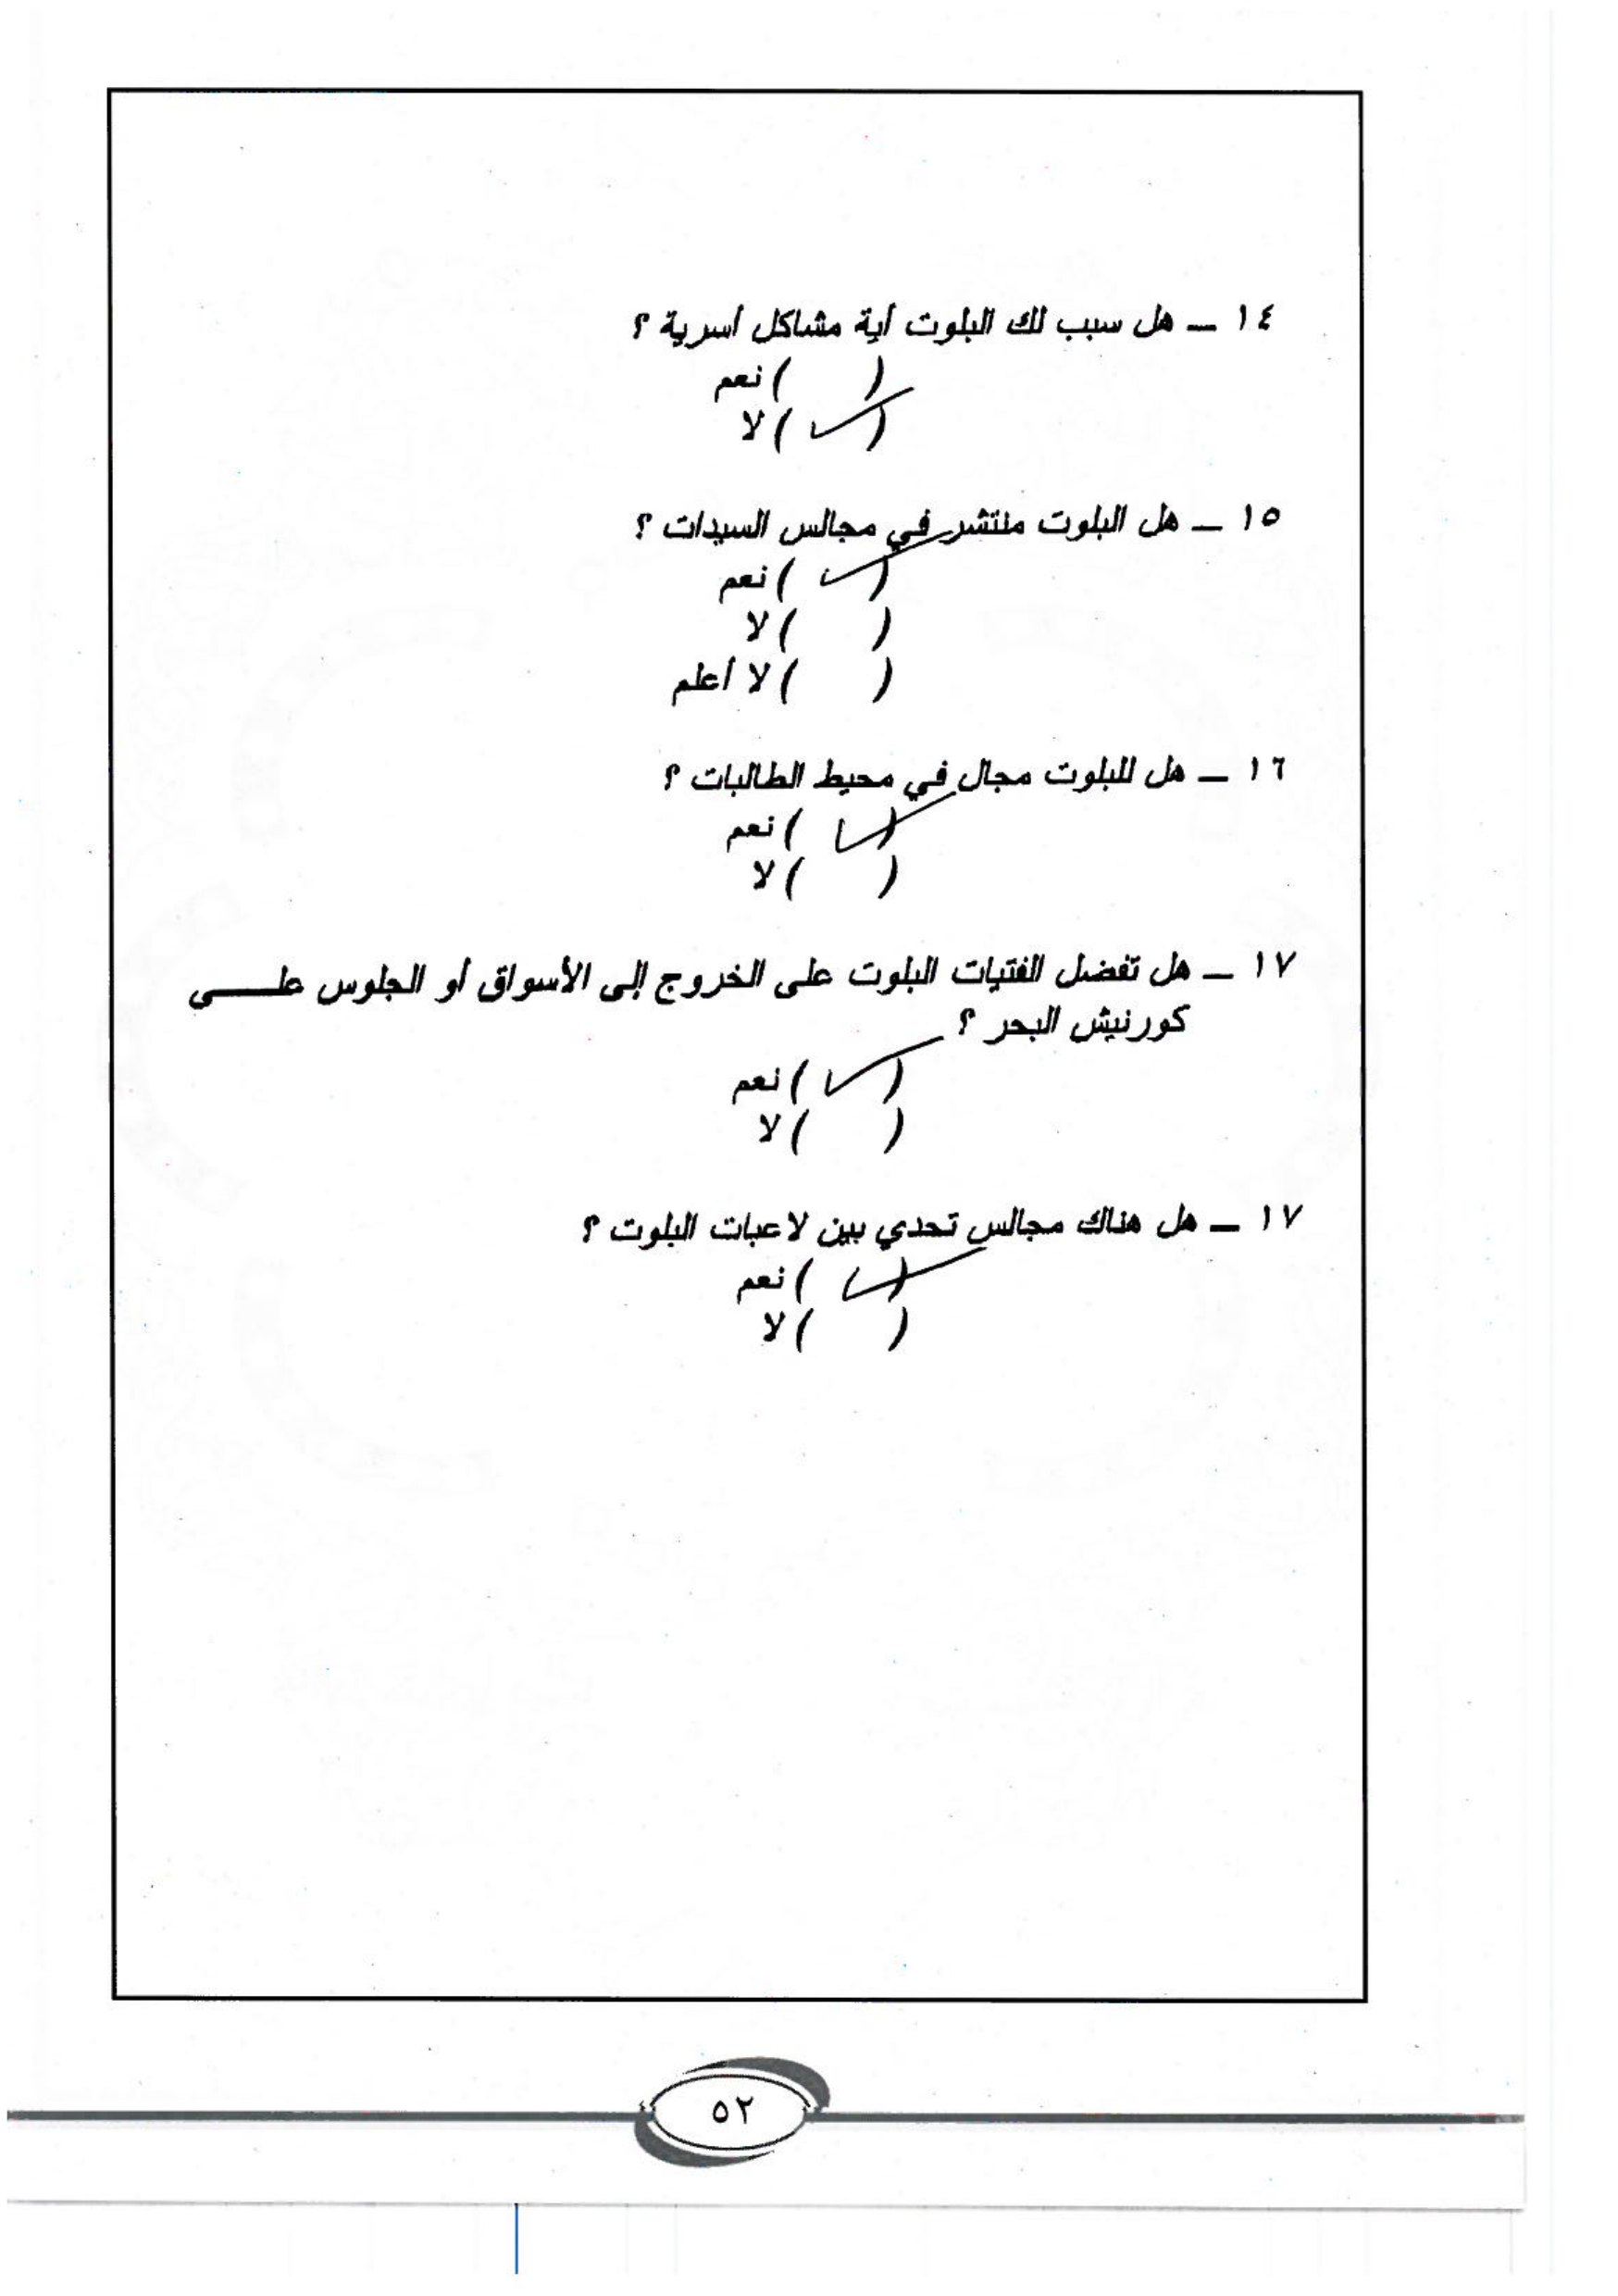 ١٤ – هل سبب لك البلوت أية مشاكل أسرية ؟
( ) نعم
(✓) لا
١٥ – هل البلوت منتشر في مجالس السيدات ؟
(✓) نعم
( ) لا
( ) لا أعلم
١٦ – هل للبلوت مجال في محيط الطالبات ؟
(✓) نعم
( ) لا
١٧ – هل تفضل الفتيات البلوت على الخروج إلى الأسواق أو الجلوس علـــى
كورنيش البحر ؟
(✓) نعم
( ) لا
١٧ – هل هناك مجالس تحدي بين لاعبات البلوت ؟
(✓) نعم
( ) لا
٥٢